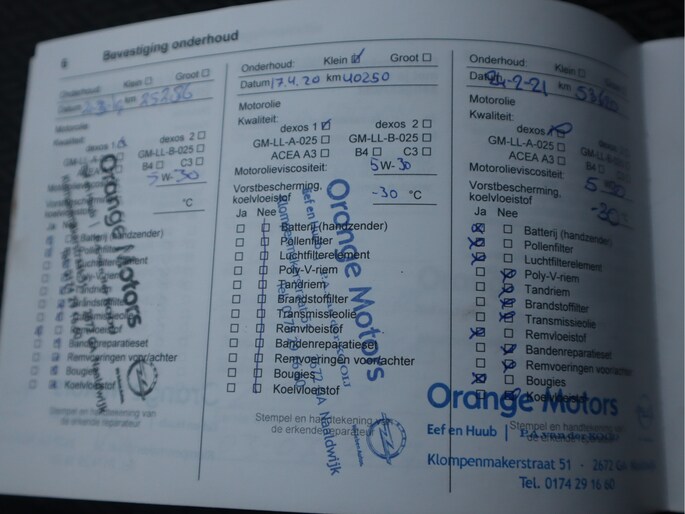 6 Bevestiging onderhoud
Klein Groot
Datum km 25256
Motorolie
Kwaliteit:
dexos 1 dexos 2
GM-LL-A-025 GM-LL-B-025
ACEA A3 B4 C3
5W-30
°C
Batterij (handzender)
Pollenfilter
Luchtfilterelement
Poly-V-riem
Tandriem
Brandstoffilter
Transmissieolie
Remvloeistof
Bandenreparatieset
Remvoeringen voor/achter
Bougies
Koelvloeistof
Stempel en handtekening van
de erkende reparateur
Orange Motors
Onderhoud: Klein Groot
Datum 17.4.20 km 40250
Motorolie
Kwaliteit:
dexos 1 dexos 2
GM-LL-A-025 GM-LL-B-025
ACEA A3 B4 C3
Motorolieviscositeit: 5W-30
Vorstbescherming,
koelvloeistof -30 °C
Ja Nee
Batterij (handzender)
Pollenfilter
Luchtfilterelement
Poly-V-riem
Tandriem
Brandstoffilter
Transmissieolie
Remvloeistof
Bandenreparatieset
Remvoeringen voor/achter
Bougies
Koelvloeistof
Stempel en handtekening van
de erkende reparateur
Orange Motors
Eef en Huub
Naaldwijk
Onderhoud: Klein
Datum 24-2-21 km
Motorolie
Kwaliteit:
dexos
GM-LL-A-025
ACEA A3
Motorolieviscositeit:
Vorstbescherming,
koelvloeistof -30
Ja Nee
Batterij (handzender)
Pollenfilter
Luchtfilterelement
Poly-V-riem
Tandriem
Brandstoffilter
Transmissieolie
Remvloeistof
Bandenreparatieset
Remvoeringen voor/achter
Bougies
Koelvloeistof
Orange Motors
Stempel en handtekening
de erkende
Eef en Huub
Klompenmakerstraat 51 · 2672
Tel. 0174 29 16 60